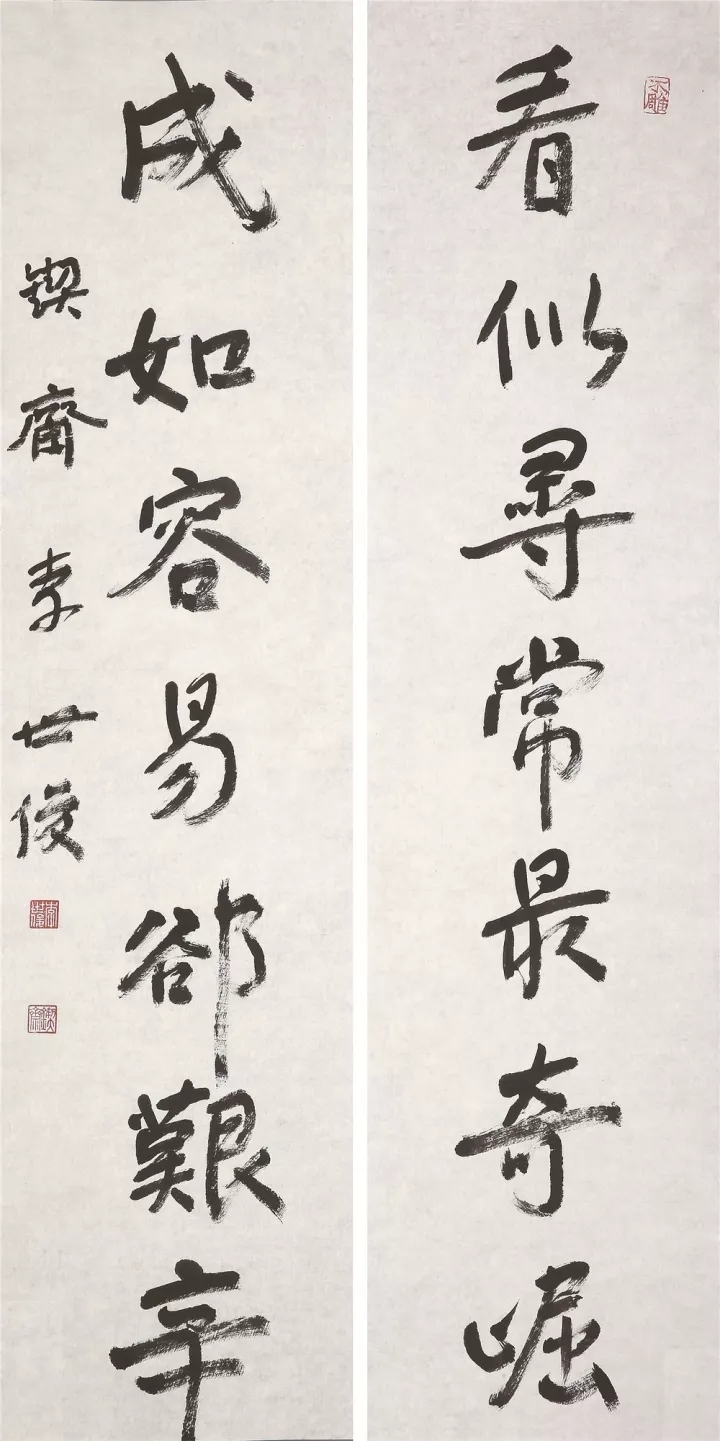 看似尋常最奇崛
成如容易卻艱辛
鍥齋 李世俊